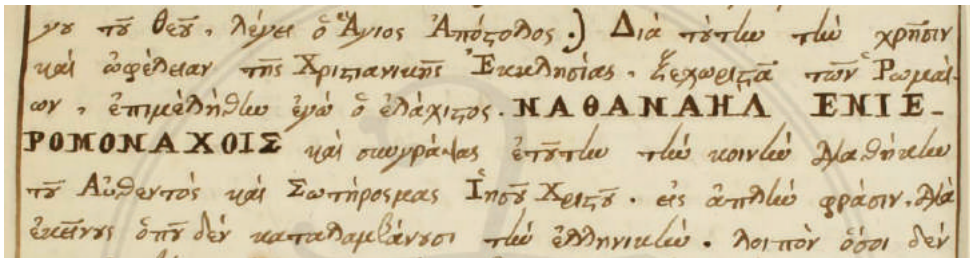 γου τοῦ Θεοῦ, λέγει ὁ Ἅγιος Ἀπόστολος.) Διὰ τούτην τὴν χρῆσιν
καὶ ὠφέλειαν τῆς Χριστιανικῆς Ἐκκλησίας. ξεχωριστὰ τῶν Ῥωμαί-
ων, ἐπιμελήθην ἐγὼ ὁ ἐλάχιστος. ΝΑΘΑΝΑΗΛ ΕΝΙΕ-
ΡΟΜΟΝΑΧΟΙΣ καὶ συγγράψας ἐτούτην τὴν κοινὴν Διαθήκην
τοῦ Αὐθεντὸς καὶ Σωτῆροσμας Ἰησοῦ Χριστοῦ. εἰς ἁπλὴν φράσιν. διὰ
ἐκείνους ὁποῦ δὲν καταλαμβάνουσι τὴν ἑλληνικὴν. λοιπὸν ὅσοι δὲν